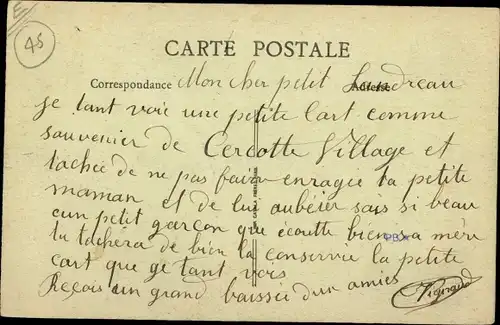 45
CARTE POSTALE
Correspondance Mon cher petit Landreau Adresse
je tant voie une petite Cart comme
souvenier de Cercotte Village et
tachée de ne pas faire enragée ta petite
maman et de lui aubéier sais si beau
un petit garçon que écoutte bien sa mère
tu tachéra de bien la conservié la petite
cart que ge tant vois
Reçois un grand baissée dun amies